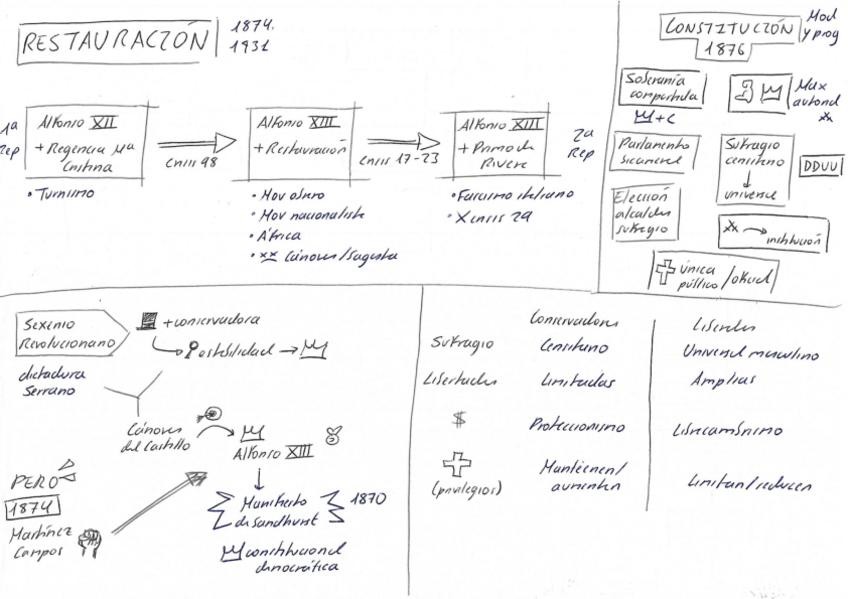 RESTAURACIÓN
1874.
1931
1ª
Rep
Alfonso XII
+ Regencia Mª
Cristina
crisis 98
Alfonso XIII
+ Restauración
crisis 17-23
Alfonso XIII
+ Primo de
Rivera
2ª
Rep
• Turnismo
• Mov obrero
• Mov nacionalista
• África
• xx Cánovas/Sagasta
• Fascismo italiano
• X crisis 29
CONSTITUCIÓN
1876
Mod
y prog
Soberanía
compartida
+C
Max
autorid
xx
Parlamento
bicameral
Sufragio
censitario
universal
DDUU
Elección
alcaldes
sufragio
xx → institución
única
público/oficial
Sexenio
Revolucionario
+ conservadora
Estabilidad →
dictadura
Serrano
Cánovas
del Castillo
Alfonso XIII
Manifiesto
de Sandhurst
1870
constitucional
democrática
PERO
1874
Martínez
Campos
Conservadores
Liberales
Sufragio
Censitario
Universal masculino
Libertades
Limitadas
Amplias
$
Proteccionismo
Librecambismo
(privilegios)
Mantienen/
aumentan
Limitan/reducen